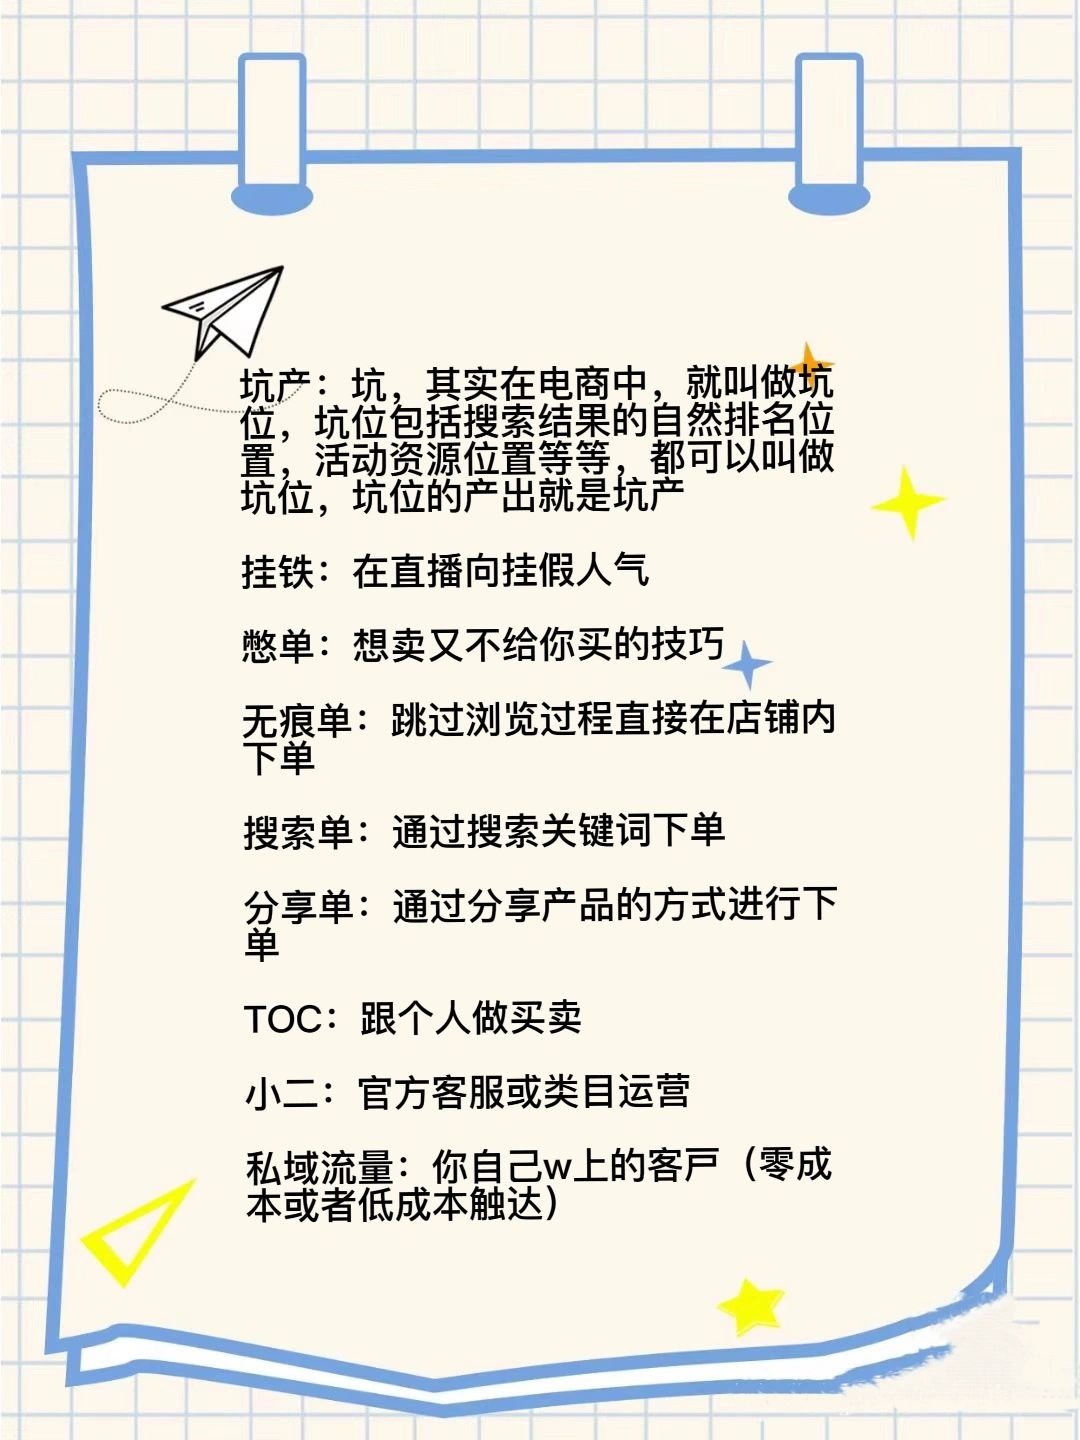 坑产：坑，其实在电商中，就叫做坑
位，坑位包括搜索结果的自然排名位
置，活动资源位置等等，都可以叫做
坑位，坑位的产出就是坑产
挂铁：在直播向挂假人气
憋单：想卖又不给你买的技巧
无痕单：跳过浏览过程直接在店铺内
下单
搜索单：通过搜索关键词下单
分享单：通过分享产品的方式进行下
单
TOC：跟个人做买卖
小二：官方客服或类目运营
私域流量：你自己w上的客戸（零成
本或者低成本触达）